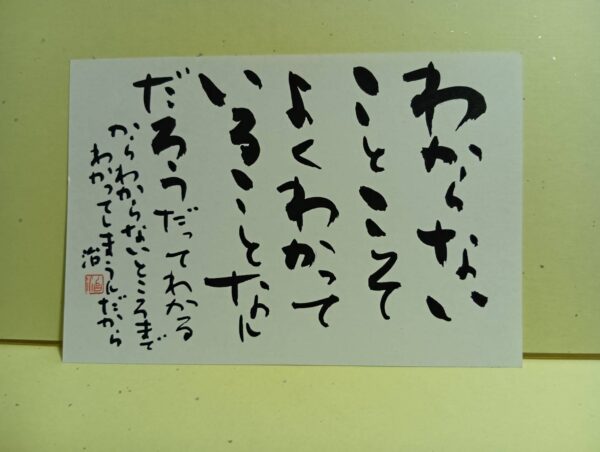 わからない
ことこそ
よくわかって
いることなん
だろうだってわかる
からわからないところまで
わかってしまうんだから
治